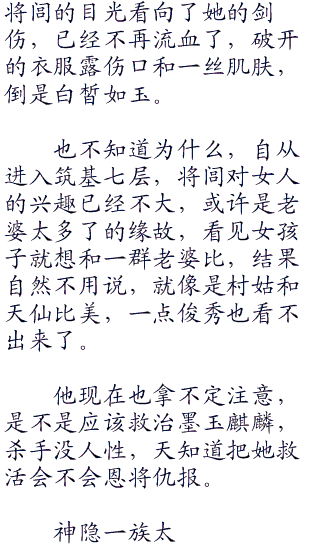 将闾的目光看向了她的剑
伤，已经不再流血了，破开
的衣服露伤口和一丝肌肤，
倒是白皙如玉。
也不知道为什么，自从
进入筑基七层，将闾对女人
的兴趣已经不大，或许是老
婆太多了的缘故，看见女孩
子就想和一群老婆比，结果
自然不用说，就像是村姑和
天仙比美，一点俊秀也看不
出来了。
他现在也拿不定注意，
是不是应该救治墨玉麒麟，
杀手没人性，天知道把她救
活会不会恩将仇报。
神隐一族太